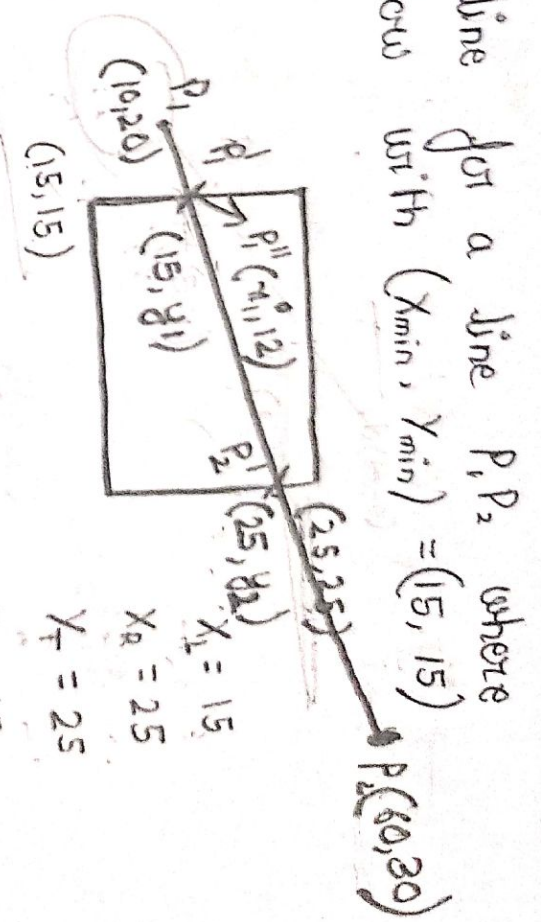 line for a line P1P2 where
ow with (Xmin, Ymin) = (15, 15)
P1
(10,20)
P1'
P1'' (x1', 12)
(15, y1)
(15, 15)
P2'
(25, y2)
(25,25)
P2(60,30)
XL = 15
XR = 25
YT = 25